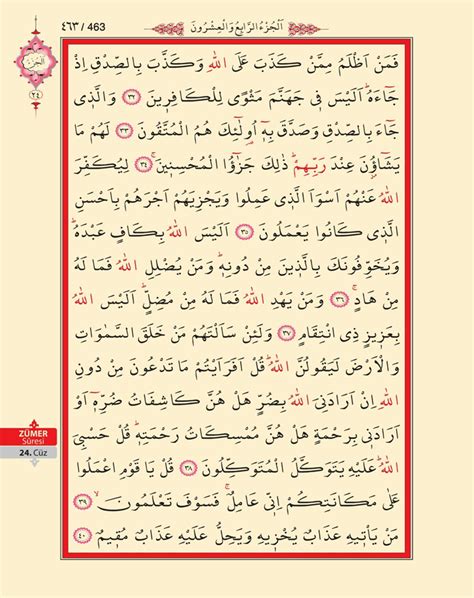 ٤٦٣ / 463
اَلْجُزْءُ الرَّابِعُ وَالْعِشْرُونَ
اَلْجُزْءُ
٢٤
فَمَنْ اَظْلَمُ مِمَّنْ كَذَبَ عَلَى اللّٰهِ وَكَذَّبَ بِالصِّدْقِ اِذْ
جَٓاءَهُۜ اَلَيْسَ ف۪ي جَهَنَّمَ مَثْوًى لِلْكَافِر۪ينَ ٣٢ وَالَّذ۪ي
جَٓاءَ بِالصِّدْقِ وَصَدَّقَ بِه۪ٓ اُو۬لٰٓئِكَ هُمُ الْمُتَّقُونَ ٣٣ لَهُمْ مَا
يَشَٓاؤُ۫نَ عِنْدَ رَبِّهِمْۜ ذٰلِكَ جَزٰٓؤُا الْمُحْسِن۪ينَۚ ٣٤ لِيُكَفِّرَ
اللّٰهُ عَنْهُمْ اَسْوَاَ الَّذ۪ي عَمِلُوا وَيَجْزِيَهُمْ اَجْرَهُمْ بِاَحْسَنِ
الَّذ۪ي كَانُوا يَعْمَلُونَ ٣٥ اَلَيْسَ اللّٰهُ بِكَافٍ عَبْدَهُۜ
وَيُخَوِّفُونَكَ بِالَّذ۪ينَ مِنْ دُونِه۪ۜ وَمَنْ يُضْلِلِ اللّٰهُ فَمَا لَهُ
مِنْ هَادٍۚ ٣٦ وَمَنْ يَهْدِ اللّٰهُ فَمَا لَهُ مِنْ مُضِلٍّۜ اَلَيْسَ اللّٰهُ
بِعَز۪يزٍ ذِي انْتِقَامٍ ٣٧ وَلَئِنْ سَاَلْتَهُمْ مَنْ خَلَقَ السَّمٰوَاتِ
وَالْاَرْضَ لَيَقُولُنَّ اللّٰهُۜ قُلْ اَفَرَاَيْتُمْ مَا تَدْعُونَ مِنْ دُونِ
اللّٰهِ اِنْ اَرَادَنِيَ اللّٰهُ بِضُرٍّ هَلْ هُنَّ كَاشِفَاتُ ضُرِّه۪ٓ اَوْ
اَرَادَن۪ي بِرَحْمَةٍ هَلْ هُنَّ مُمْسِكَاتُ رَحْمَتِه۪ۜ قُلْ حَسْبِيَ
اللّٰهُۜ عَلَيْهِ يَتَوَكَّلُ الْمُتَوَكِّلُونَ ٣٨ قُلْ يَا قَوْمِ اعْمَلُوا
عَلٰى مَكَانَتِكُمْ اِنّ۪ي عَامِلٌۚ فَسَوْفَ تَعْلَمُونَۙ ٣٩
مَنْ يَأْت۪يهِ عَذَابٌ يُخْز۪يهِ وَيَحِلُّ عَلَيْهِ عَذَابٌ مُق۪يمٌ ٤٠
ZÜMER
Sûresi
24. Cüz